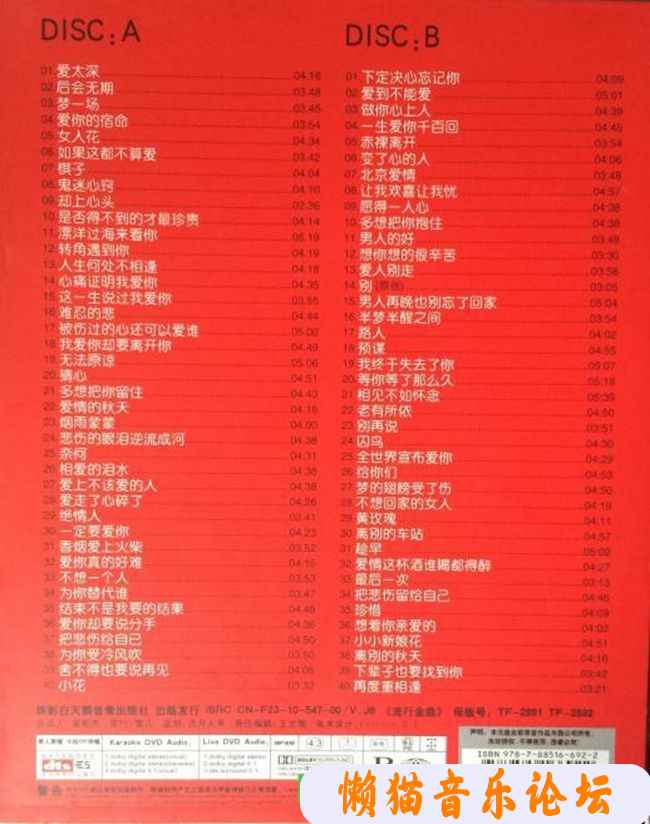 DISC: A
01. 爱太深 04:16
02. 后会无期 03:48
03. 梦一场 03:45
04. 爱你的宿命 03:54
05. 女人花 04:34
06. 如果这都不算爱 03:42
07. 棋子 04:04
08. 鬼迷心窍 04:10
09. 却上心头 02:36
10. 是否得不到的才最珍贵 04:14
11. 漂洋过海来看你 05:19
12. 转角遇到你 04:19
13. 人生何处不相逢 04:18
14. 心痛证明我爱你 04:35
15. 这一生说过我爱你 03:55
16. 难忍的悲 04:44
17. 被伤过的心还可以爱谁 05:02
18. 我爱你却要离开你 04:49
19. 无法原谅 05:06
20. 猜心 04:51
21. 多想把你留住 04:43
22. 爱情的秋天 04:18
23. 烟雨蒙蒙 04:00
24. 悲伤的眼泪逆流成河 04:38
25. 奈何 04:31
26. 相爱的泪水 04:38
27. 爱上不该爱的人 04:38
28. 爱走了心碎了 04:26
29. 绝情人 03:41
30. 一定要爱你 04:23
31. 香烟爱上火柴 03:52
32. 爱你真的好难 04:15
33. 不想一个人 03:53
34. 为你替代谁 03:47
35. 结束不是我要的结果 04:48
36. 爱你却要说分手 04:36
37. 把悲伤给自己 04:50
38. 为你受冷风吹 04:50
39. 舍不得也要说再见 04:08
40. 小花 03:32
DISC: B
01. 下定决心忘记你 04:09
02. 爱到不能爱 05:01
03. 做你心上人 04:39
04. 一生爱你千百回 04:45
05. 赤裸离开 03:54
06. 变了心的人 04:06
07. 北京爱情 03:48
08. 让我欢喜让我忧 04:57
09. 愿得一人心 04:38
10. 多想把你抱住 04:38
11. 男人的好 03:48
12. 想你想的很辛苦 03:30
13. 爱人别走 03:58
14. 别(原创) 03:05
15. 男人再晚也别忘了回家 05:04
16. 半梦半醒之间 03:54
17. 路人 04:02
18. 预谋 04:55
19. 我终于失去了你 05:07
20. 等你等了那么久 05:18
21. 相见不如怀念 05:39
22. 老有所依 04:50
23. 别再说 03:51
24. 囚鸟 04:30
25. 全世界宣布爱你 04:29
26. 给你们 04:53
27. 梦的翅膀受了伤 04:50
28. 不想回家的女人 04:18
29. 黄玫瑰 04:11
30. 离别的车站 04:57
31. 趁早 05:02
32. 爱情这杯酒谁喝都得醉 04:27
33. 最后一次 03:13
34. 把悲伤留给自己 04:46
35. 珍惜 04:09
36. 想着你亲爱的 04:02
37. 小小新娘花 04:51
38. 离别的秋天 04:16
39. 下辈子也要找到你 03:42
40. 再度重相逢 03:21
珠影白天鹅音像出版社 出版发行 ISRC CN-F23-10-547-00/V.J6 《流行金曲》 母版号: TF-2891 TF-2892
Karaoke DVD Audio, Live DVD Audio,
4:3
dts ES
ISBN 978-7-88516-692-2
警告
懒猫音乐论坛